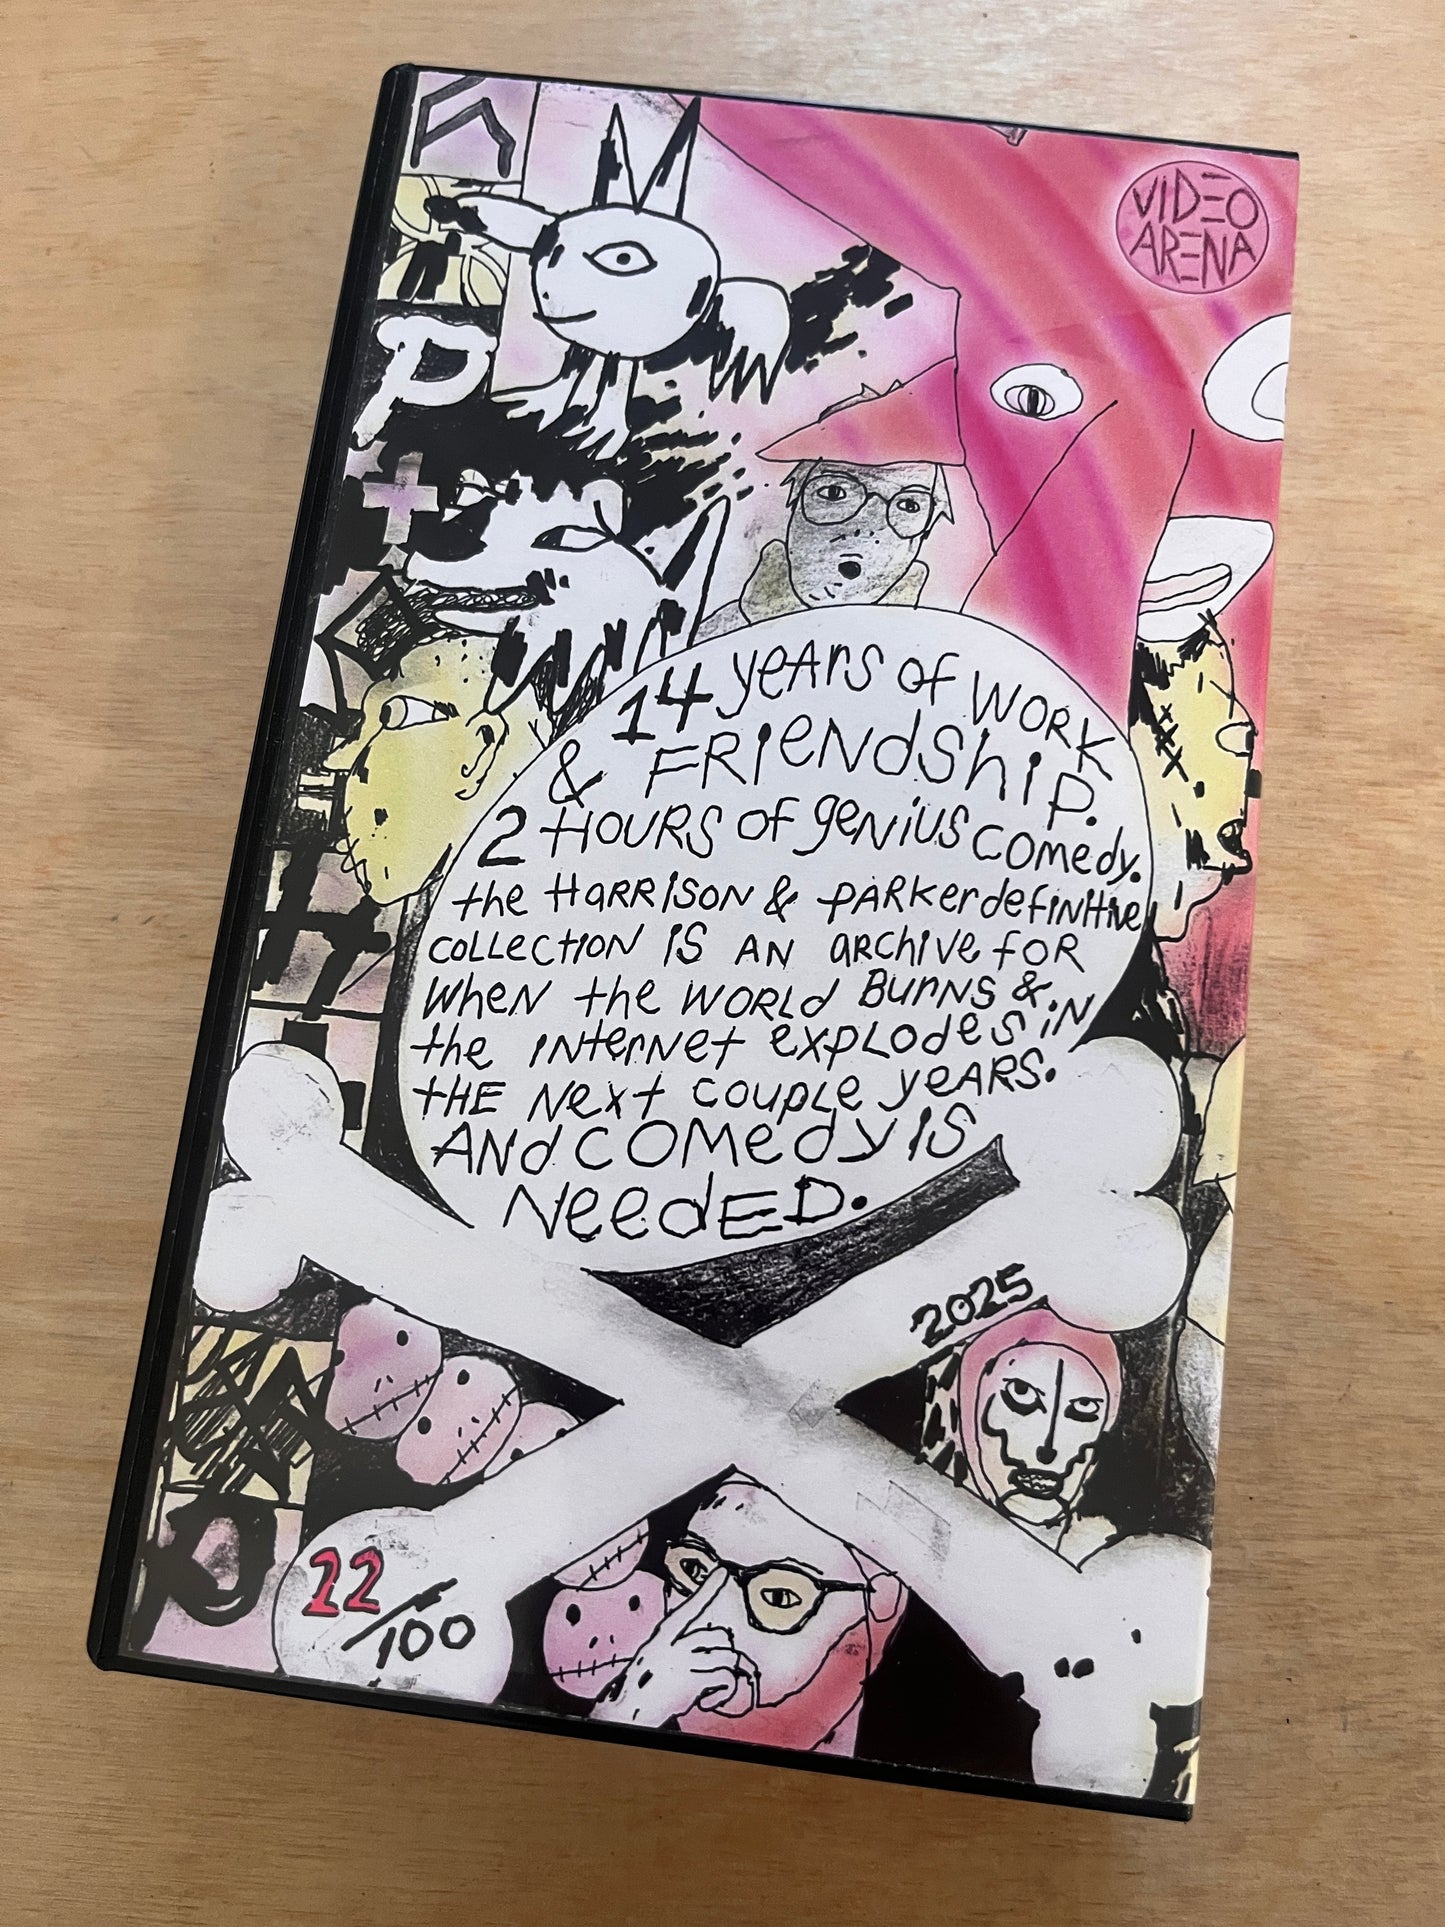 VIDEO
ARENA
P
14 years of work
& FRIENDSHIP.
2 HOURS OF GENIUS COMEDY.
the HARRISON & PARKER definitive
COLLECTION IS AN ARCHIVE FOR
WHEN the WORLD BURNS & IN
the INTERNET EXPLODES IN
THE NEXT COUPLE YEARS.
AND COMEDY IS
NEEDED.
2025
22/100